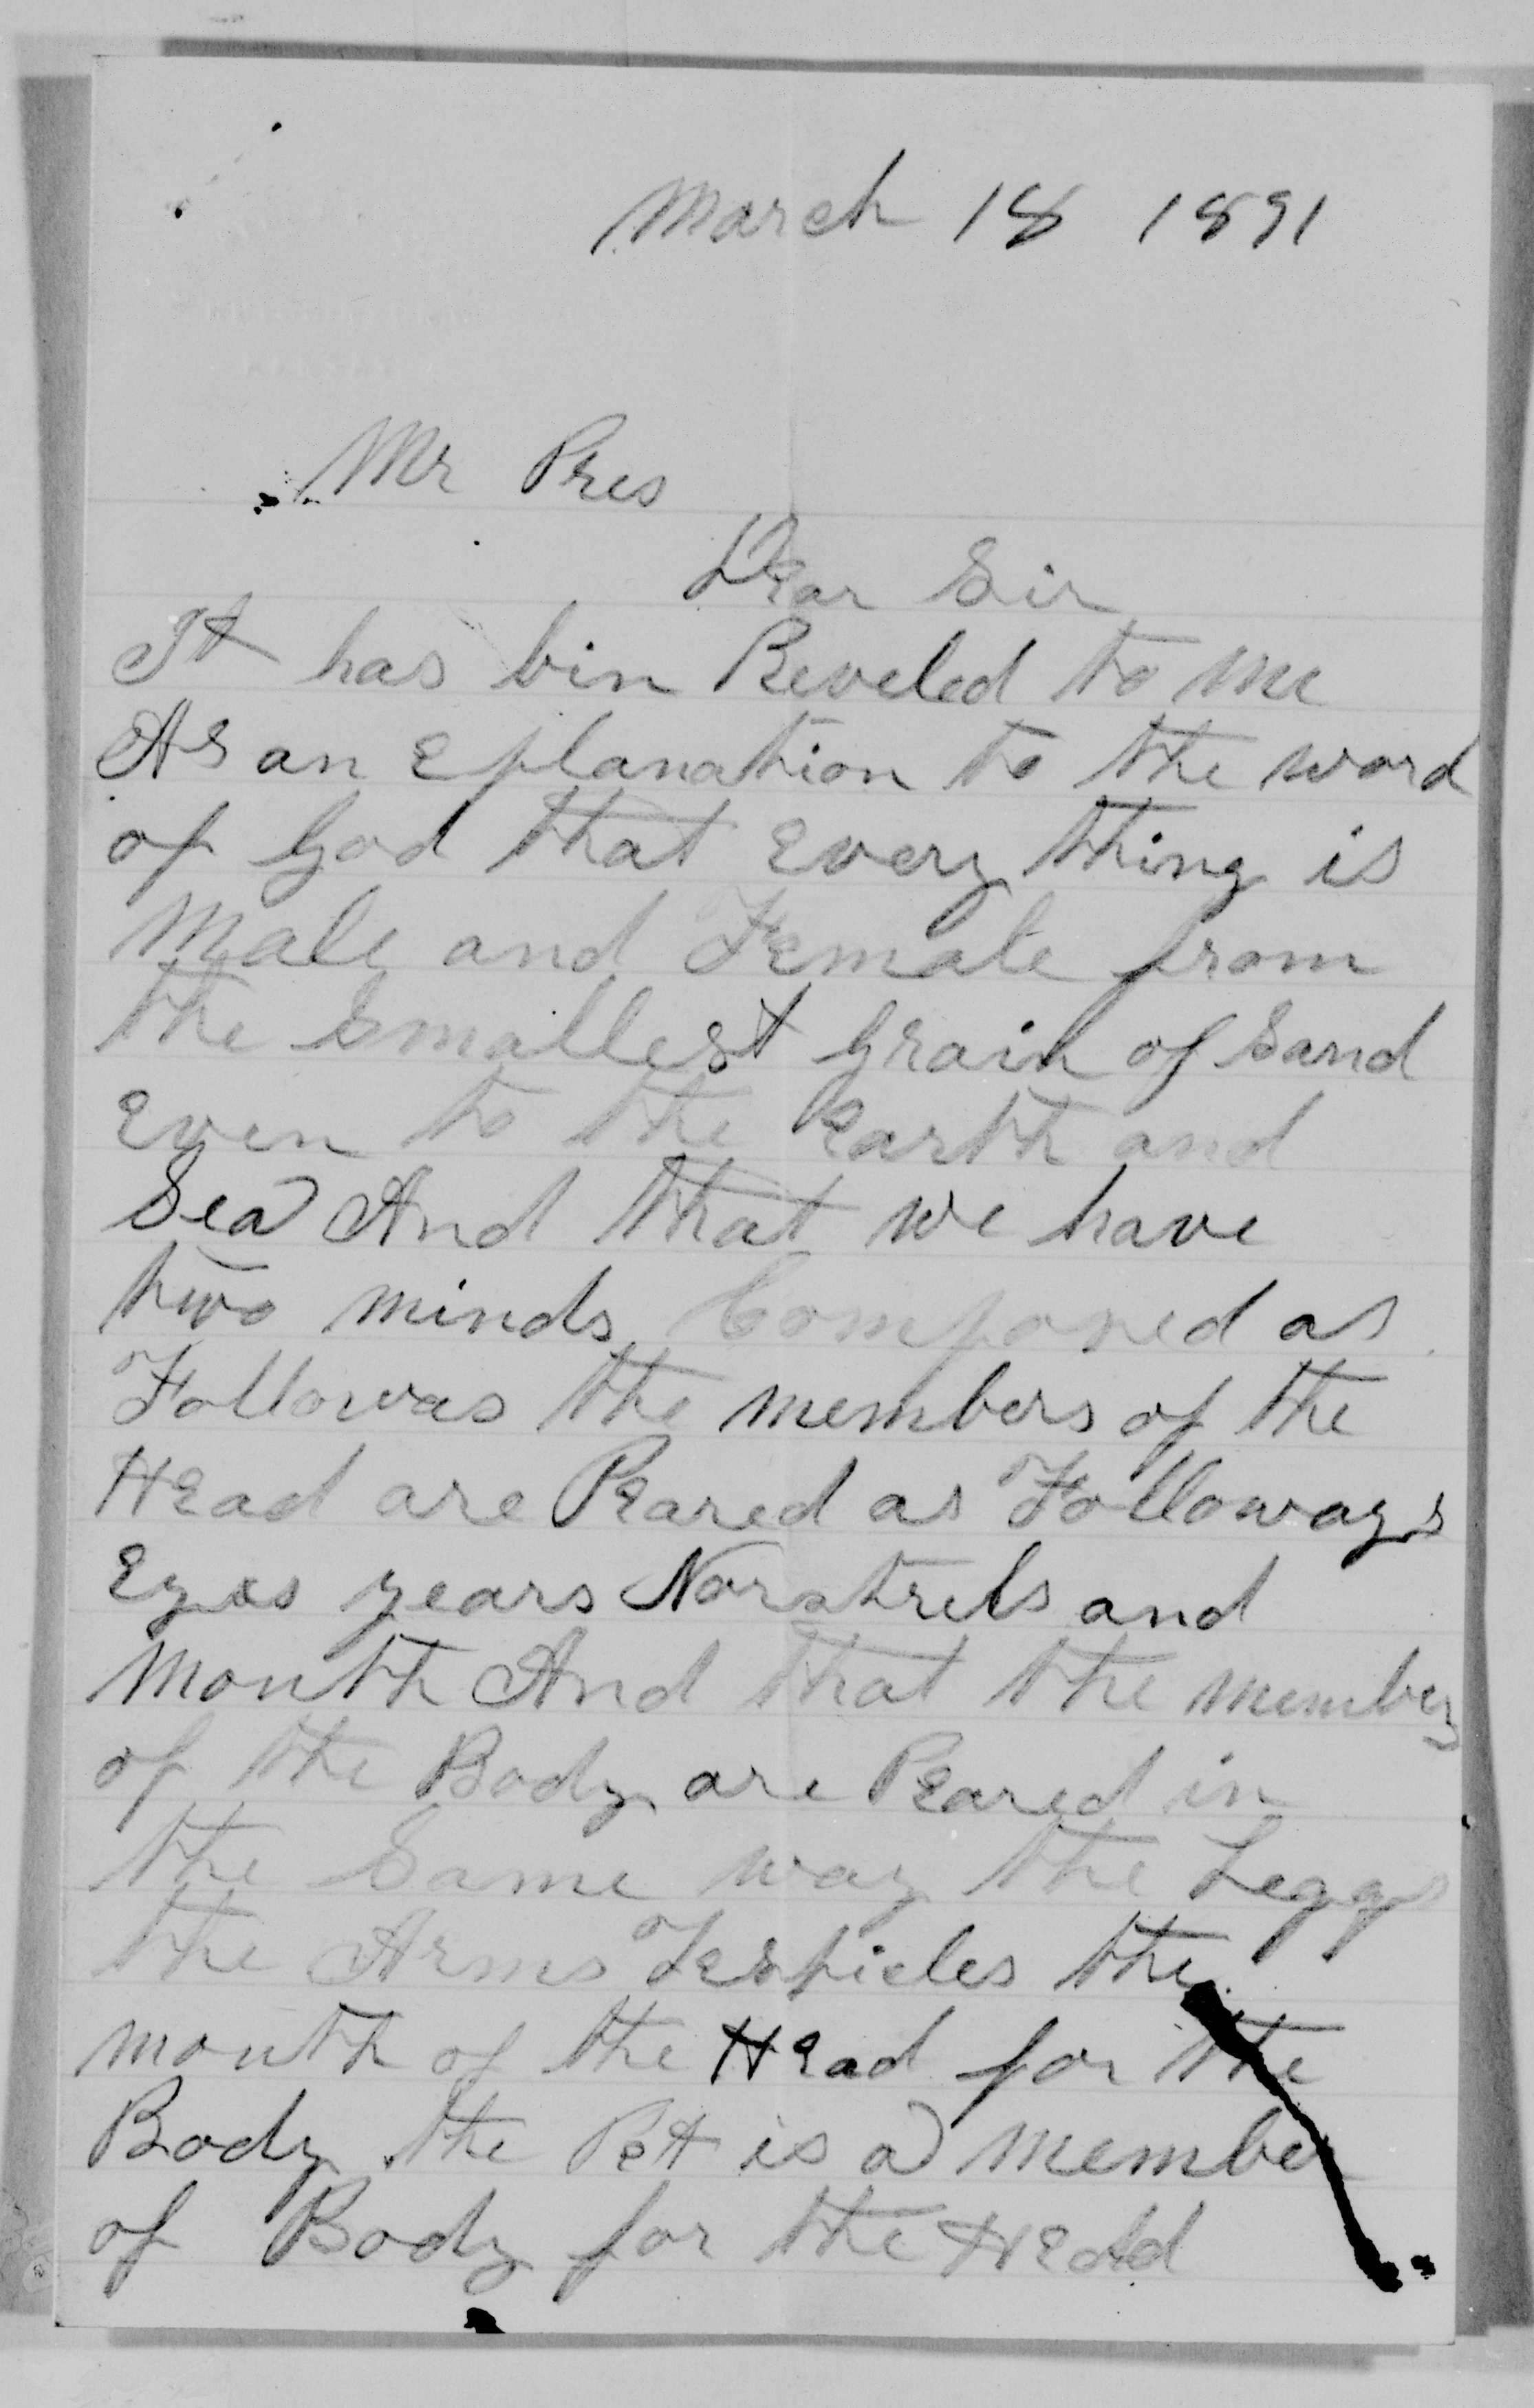 March 18 1891
Mr Pres
Dear Sir
It has bin Reveled to me
As an Eplanation to the word
of God that Every thing is
Male and Female from
the Smallest Grain of Sand
Even to the Earth and
Sea And that we have
two minds Composed as
Followas the members of the
Head are Peared as Followays
Eyes years Norstrels and
Mouth And that the members
of the Body are Peared in
the Same way the Leggs
the Arms Testicles the
mouth of the Head for the
Body the Pett is a member
of Body for the Head